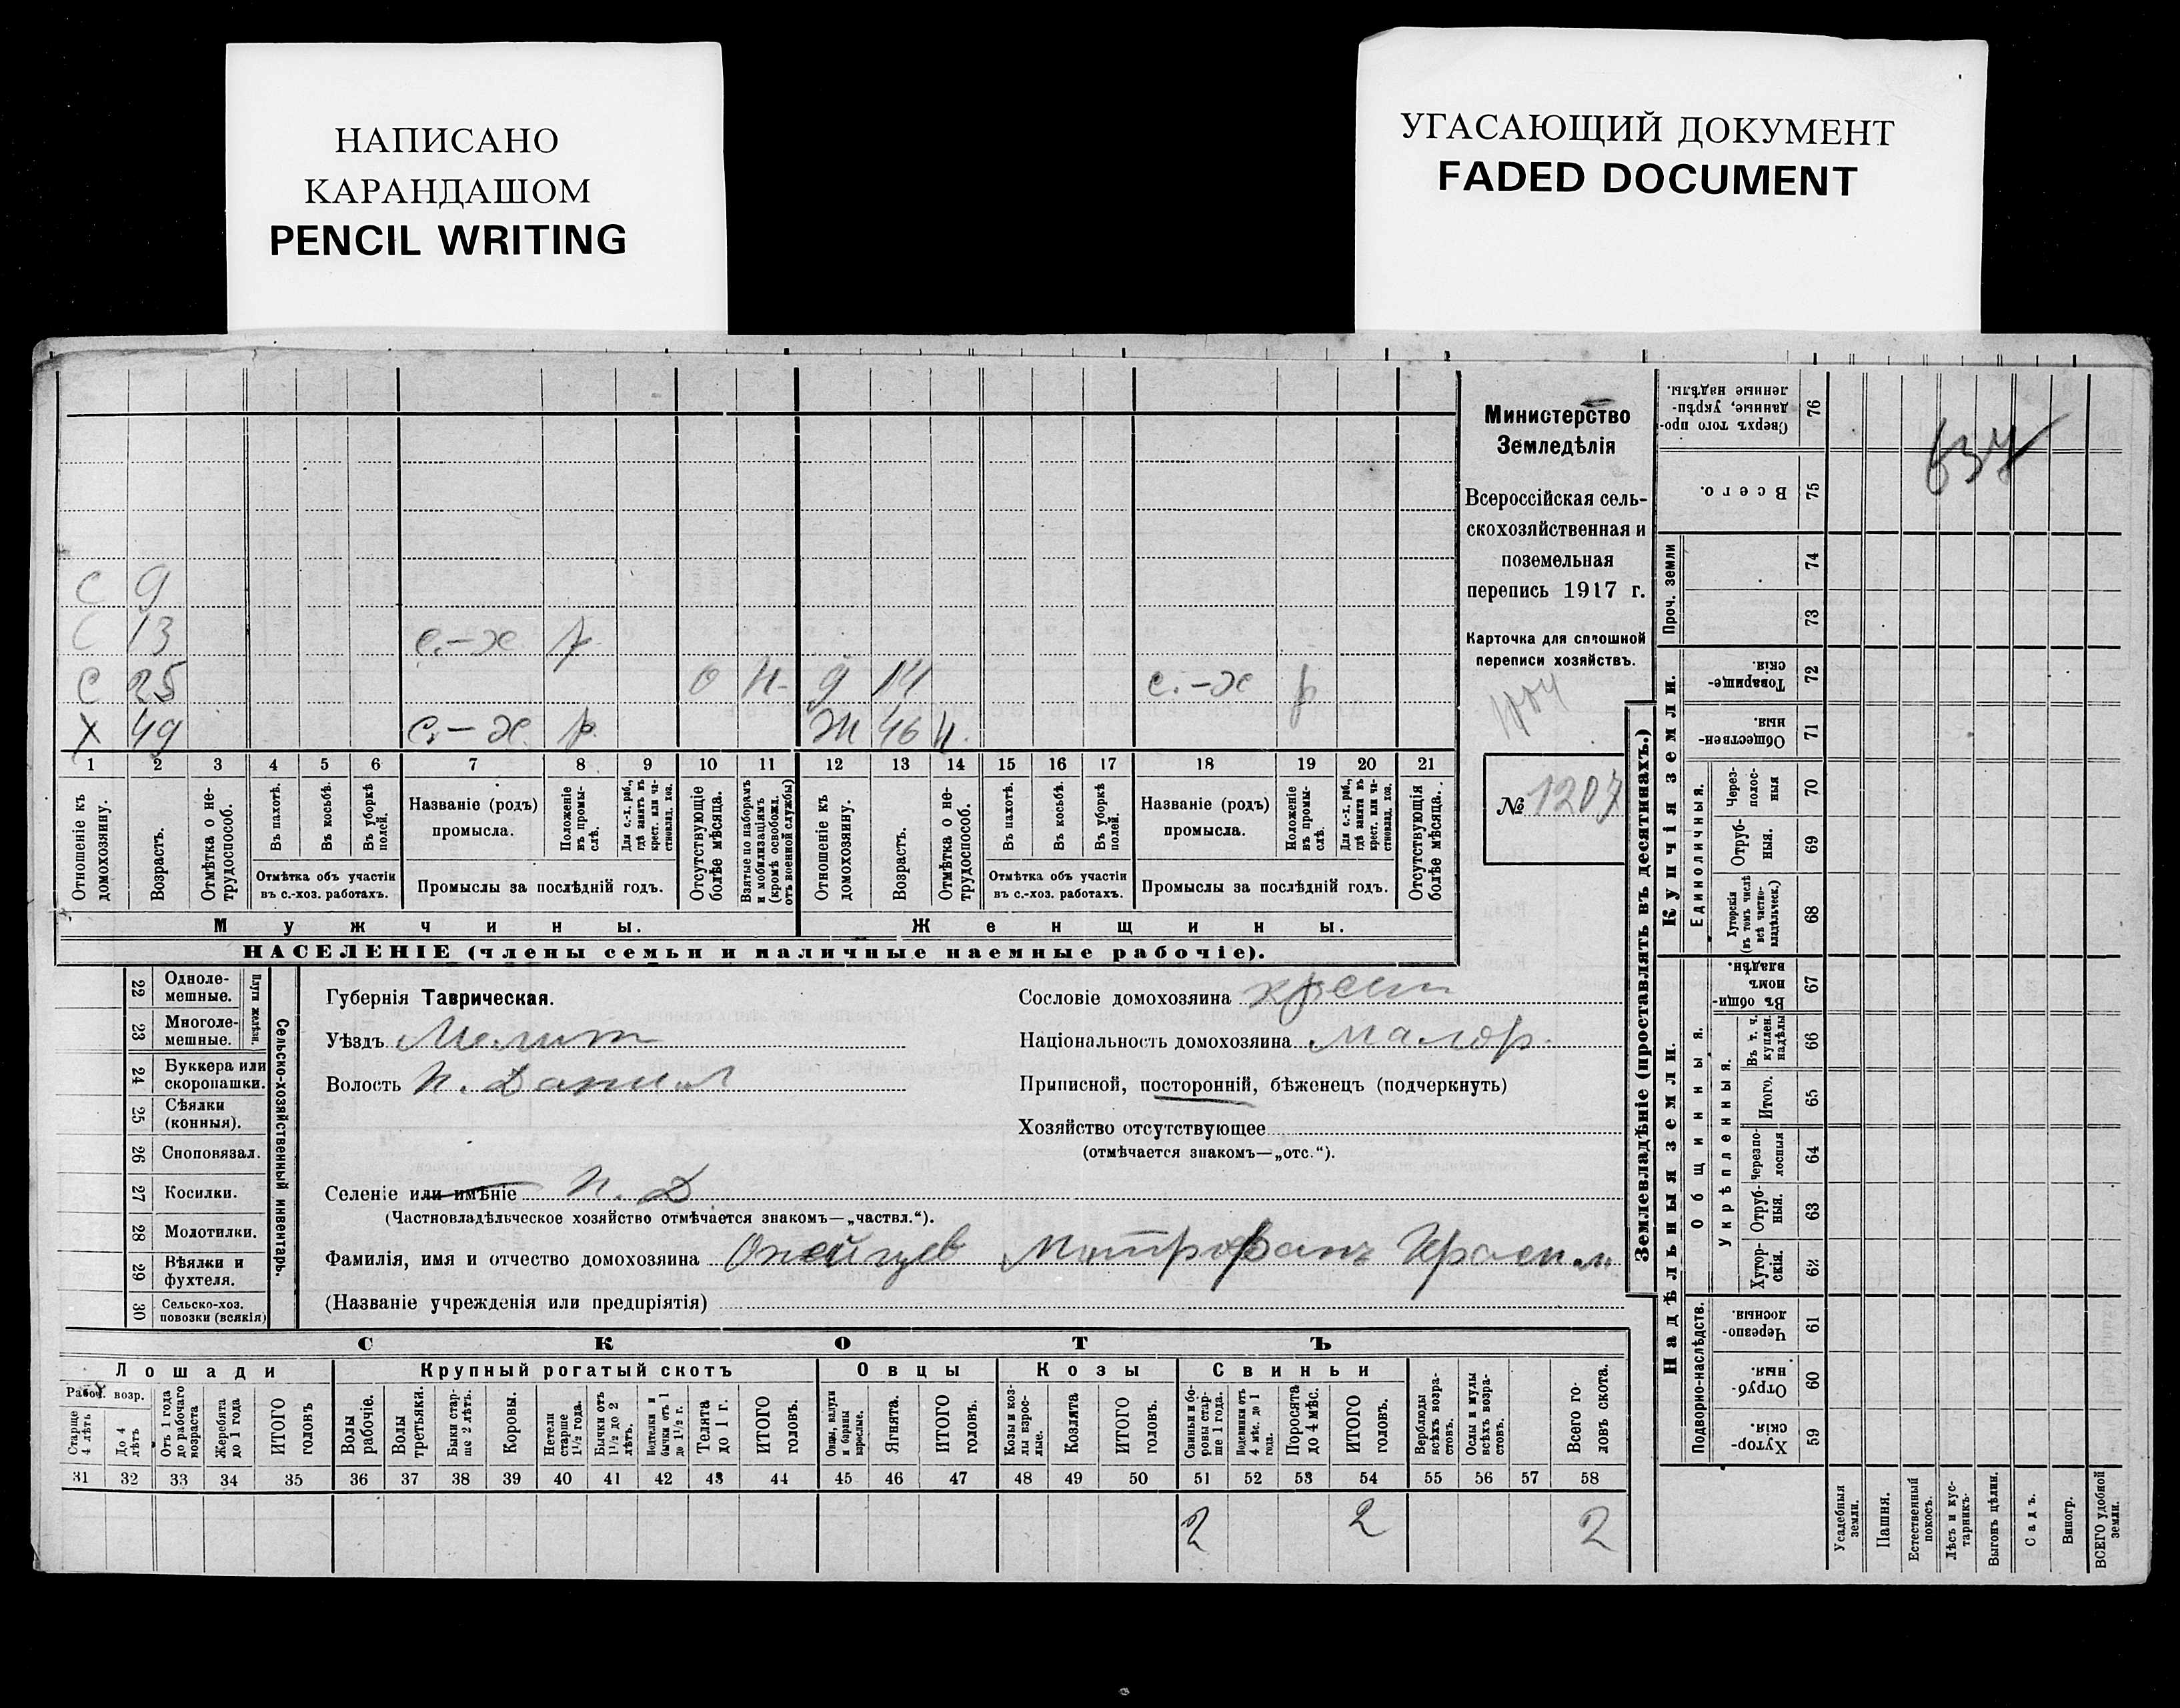 НАПИСАНО
КАРАНДАШОМ
PENCIL WRITING
УГАСАЮЩИЙ ДОКУМЕНТ
FADED DOCUMENT
С 9
С 13 с.-х. р.
С 25 О Н. д 14 с.-х р
Х 49 с.-х. р. Ж 46 н.
1 2 3 4 5 6 7 8 9 10 11 12 13 14 15 16 17 18 19 20 21
Отношеніе къ домохозяину.
Возрастъ.
Отмѣтка о нетрудоспособ.
Въ пахотѣ.
Въ косьбѣ.
Въ уборкѣ полей.
Отмѣтка объ участіи
въ с.-хоз. работахъ.
Названіе (родъ)
промысла.
Положеніе въ промыслѣ.
Для с.-х. раб., гдѣ занятъ въ крест. или частновлад. хоз.
Промыслы за послѣдній годъ.
Отсутствующіе болѣе мѣсяца.
Взятые по наборамъ и мобилизаціямъ (кромѣ освобожд. отъ военной службы)
Отношеніе къ домохозяину.
Возрастъ.
Отмѣтка о нетрудоспособ.
Въ пахотѣ.
Въ косьбѣ.
Въ уборкѣ полей.
Отмѣтка объ участіи
въ с.-хоз. работахъ.
Названіе (родъ)
промысла.
Положеніе въ промыслѣ.
Для с.-х. раб., гдѣ занята въ крест. или частновлад. хоз.
Промыслы за послѣдній годъ.
Отсутствующія болѣе мѣсяца.
Мужчины.
Женщины.
НАСЕЛЕНІЕ (члены семьи и наличные наемные рабочіе).
Министерство
Земледѣлія
Всероссійская сель-
скохозяйственная и
поземельная
перепись 1917 г.
Карточка для сплошной
переписи хозяйствъ.
№ 1207
Сельско-хозяйственный инвентарь.
Плуги желѣзн.
22 Одноле-
мешные.
23 Многоле-
мешные.
24 Буккера или
скоропашки.
25 Сѣялки
(конныя).
26 Сноповязал.
27 Косилки.
28 Молотилки.
29 Вѣялки и
фухтеля.
30 Сельско-хоз.
повозки (всякія)
Губернія Таврическая.
Уѣздъ Мелит
Волость Н. Данил
Сословіе домохозяина крест
Національность домохозяина малор.
Приписной, посторонній, бѣженецъ (подчеркнуть)
Хозяйство отсутствующее
(отмѣчается знакомъ—„отс.“).
Селеніе или имѣніе Н. Д
(Частновладѣльческое хозяйство отмѣчается знакомъ—„частвл.“).
Фамилія, имя и отчество домохозяина Митрофанъ
(Названіе учрежденія или предпріятія)
СКОТЪ
Лошади
Крупный рогатый скотъ
Овцы
Козы
Свиньи
Рабоч. возр.
Старше 4 лѣтъ
До 4 лѣтъ
Отъ 1 года до рабочаго возраста
Жеребята до 1 года
ИТОГО головъ
Волы рабочіе.
Волы третьяки.
Быки старше 2 лѣтъ.
Коровы.
Нетели старше 1½ года.
Бычки отъ 1½ до 2 лѣтъ.
Нетелки и бычки отъ 1 до 1½ г.
Телята до 1 г.
ИТОГО головъ.
Овцы, валухи и бараны взрослые.
Ягнята.
ИТОГО головъ.
Козы и козлы взрослые.
Козлята
ИТОГО головъ.
Свиньи и боровы старше 1 года.
Подсвинки отъ 4 мѣс. до 1 года.
Поросята до 4 мѣс.
ИТОГО головъ.
Верблюды всѣхъ возрастовъ.
Ослы и мулы всѣхъ возрастовъ.
Всего головъ скота.
31 32 33 34 35 36 37 38 39 40 41 42 43 44 45 46 47 48 49 50 51 52 53 54 55 56 57 58
2 2 2
Землевладѣніе (проставлять въ десятинахъ.)
Купчія земли.
Надѣльныя земли.
Сверхъ того проданные, укрѣпленные надѣлы. 76
Всего. 75
Проч. земли
74
73
Товарищескія. 72
Общественныя. 71
Единоличныя.
Черезполосныя 70
Отрубныя. 69
Хуторскія (въ томъ числѣ всѣ частновладѣльческ.) 68
Общинныя.
Въ общинномъ владѣн. 67
Укрѣпленныя.
Въ т. ч. куплен. надѣлы 66
Итого. 65
Черезполосныя 64
Отрубныя. 63
Хуторскія. 62
Подворно-наслѣдств.
Черезполосныя. 61
Отрубныя. 60
Хуторскія. 59
Усадебныя земли.
Пашня.
Естественный покосъ.
Лѣсъ и кустарникъ.
Выгонъ цѣлин.
Садъ.
Виногр.
ВСЕГО удобной земли.
637